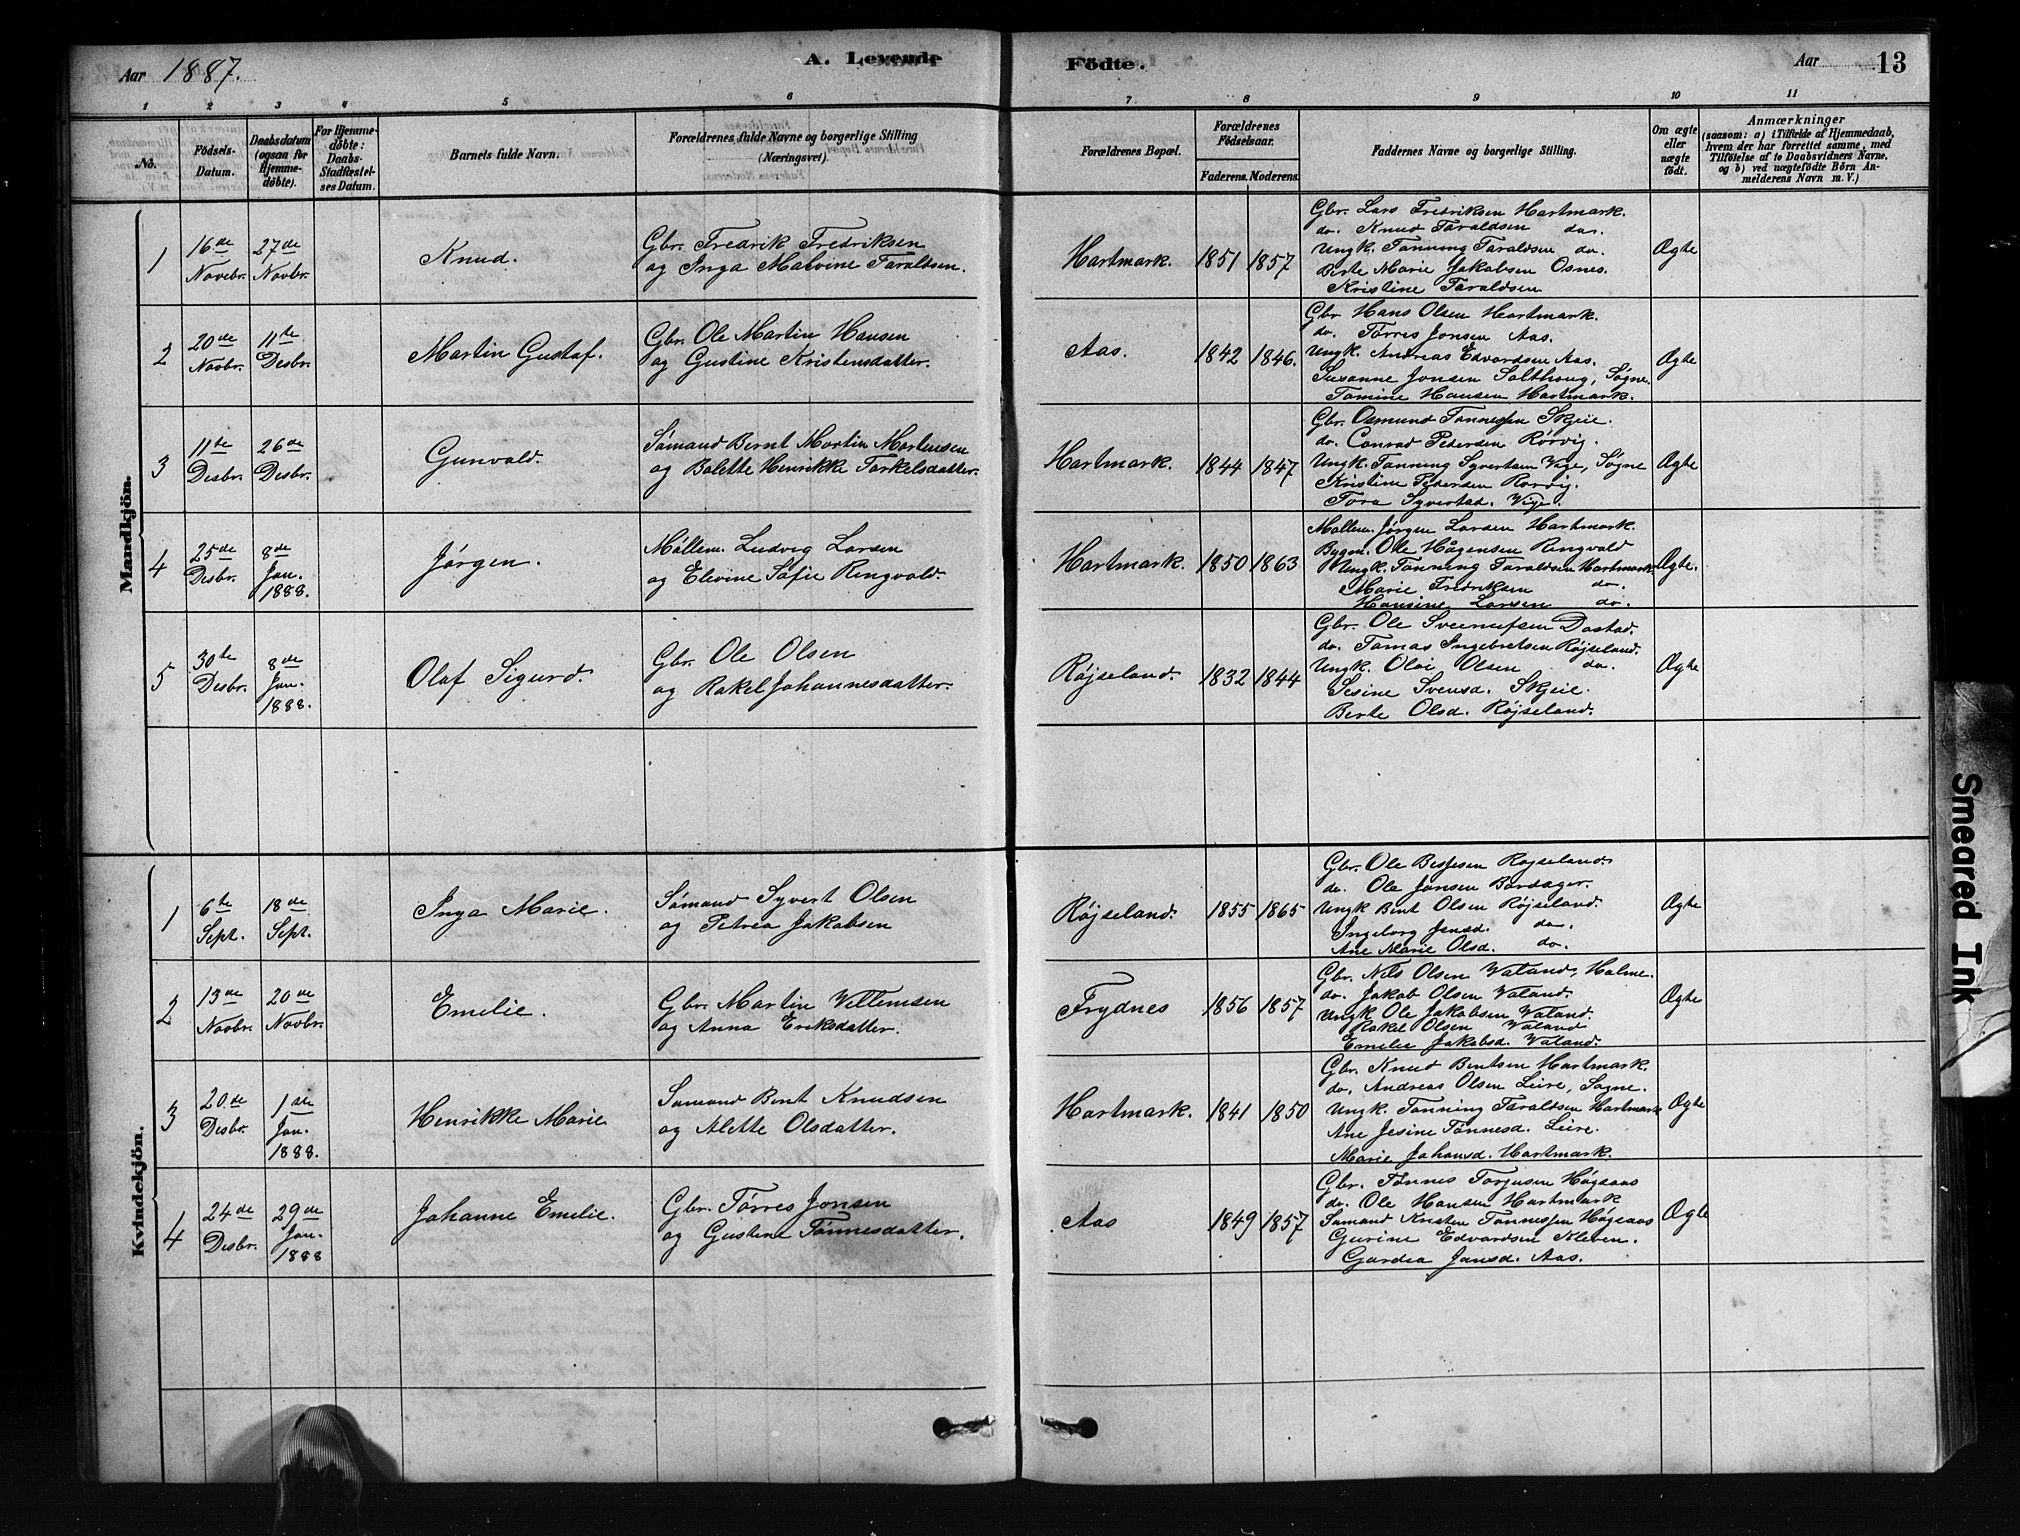 Aar 1887.
A. Levende
Födte.
Aar
13
1 2 3 4 5 6 7 8 9 10 11
No.
Födsels-
Datum.
Daabsdatum
(ogsaa for
Hjemme-
döbte).
For Hjemme-
döbte:
Daabs-
Stadfæstel-
ses Datum.
Barnets fulde Navn.
Forældrenes fulde Navne og borgerlige Stilling
(Næringsvei).
Forældrenes Bopæl.
Forældrenes
Födselsaar.
Faderens. Moderens.
Faddernes Navne og borgerlige Stilling.
Om ægte
eller
uægte
födt.
Anmærkninger
(saasom: a) i Tilfælde af Hjemmedaab,
hvem der har forrettet samme, med
Tilföielse af to Daabsvidners Navne,
og b) ved uægtefödte Börn An-
melderens Navn m. V.)
Mandkjön.
1
16de
Novebr.
27de
Novbr.
Knud.
Gbr. Fredrik Fredriksen
og Inga Malvine Taraldsen.
Hartmark. 1851 1857
Gbr. Lars Fredriksen Hartmark.
do. Knud Taraldsen do.
Ungk. Tønning Taraldsen do.
Berte Marie Jakobsen Osnes.
Kristine Taraldsen
Ægte
2
20de
Novbr.
11te
Desbr.
Martin Gustaf.
Gbr. Ole Martin Hansen
og Gustine Kristensdatter.
Aas. 1842 1846.
Gbr Hans Olsen Hartmark.
do. Tørres Jonsen Aas.
Ungk. Andreas Edvardsen Aas.
Susanne Jonsen Salthoug, Søgne.
Tomine Hansen Hartmark.
Ægte
3
11te
Desbr.
26de
Desbr.
Gunvald.
Sømand Bernt Martin Mortensen
og Bolette Henrikke Torkelsdatter.
Hartmark. 1844 1847
Gbr. Osmund Tønnessen Skjeie.
do. Conrad Pedersen Rørvig.
Ungk. Tønning Syvertsen Vige, Søgne
Kristine Pedersen Rørvig.
Tora Syvertsd. Vige.
Ægte
4
25de
Desbr.
8de
Jan.
1888.
Jørgen.
Møllem. Ludvig Larsen
og Elevine Sofie Ringvold.
Hartmark. 1850 1863
Møllem. Jørgen Larsen Hartmark.
Bygm. Ole Hågensen Ringvold
Ungk. Tønning Taraldsen Hartmark
Marie Fredriksen do.
Hansine Larsen do.
Ægte.
5
30te
Desbr.
8de
Jan.
1888.
Olaf Sigurd.
Gbr. Ole Olsen
og Rakel Johannesdatter.
Røjseland. 1832 1844
Gbr. Ole Dostad.
do. Tomas Ingebretsen Røjseland.
Ungk. Olai Olsen do.
Sesine Svensd. Skjeie.
Berte Olsd. Røjseland.
Ægte
Kvindekjön.
1
6te
Sept.
18de
Sept.
Inga Marie.
Sømand Syvert Olsen
og Petrea Jakobsen
Røjseland. 1855 1865
Gbr. Ole Røjseland.
do. Ole Jonsen Bordager.
Ungk Bent Olsen Røjseland.
Ingeborg Jensd. do.
Ane Marie Olsd. do.
Ægte
2
13de
Novbr.
20de
Novbr.
Emilie.
Gbr. Martin Villemsen
og Anna Eriksdatter.
Frydnes 1856 1857
Gbr. Nils Olsen Valand, Holme.
do. Jakob Olsen Valand.
Ungk Ole Jakobsen Valand.
Rakel Olsen Valand
Emelie Jakobsd. Valand.
Ægte
3
20.de
Desbr.
1ste
Jan.
1888.
Henrikke Marie
Sømand Bent Knudsen
og Alette Olsdatter.
Hartmark. 1841 1850
Gbr. Knud Bentsen Hartmark.
do. Andreas Olsen Leire, Søgne.
Ungk. Tønning Taraldsen Hartmark
Ane Jesine Tønnesd. Leire.
Marie Johansd. Hartmark.
Ægte
4
24de
Desbr.
29de
Jan.
1888
Johanne Emelie.
Gbr. Tørres Jonsen
og Gustine Tønnesdatter.
Aas 1849 1857
Gbr. Tønnes Torjusen Høgsaas
do. Ole Hansen Hartmark
Sømand Kristen Tønnessen Høgsaas
Gurine Edvardsen Kleven.
Gardea Jonsd. Aas.
Ægte
Smeared Ink